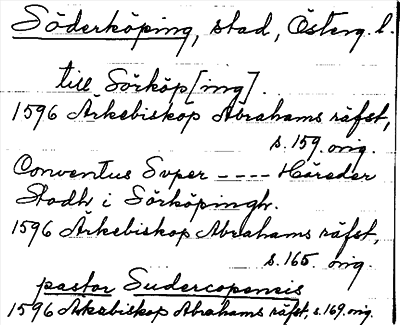 Söderköping, stad, Österg. l.
till Sörköp[ing].
1596 Ärkebiskop Abrahams räfst,
s. 159. orig.
Conventus Super ---- Häreder
Stadh i Sörköpingh.
1596 Ärkebiskop Abrahams räfst,
s. 165. orig.
pastor Sudercopensis
1596 Ärkebiskop Abrahams räfst, s. 169. orig.